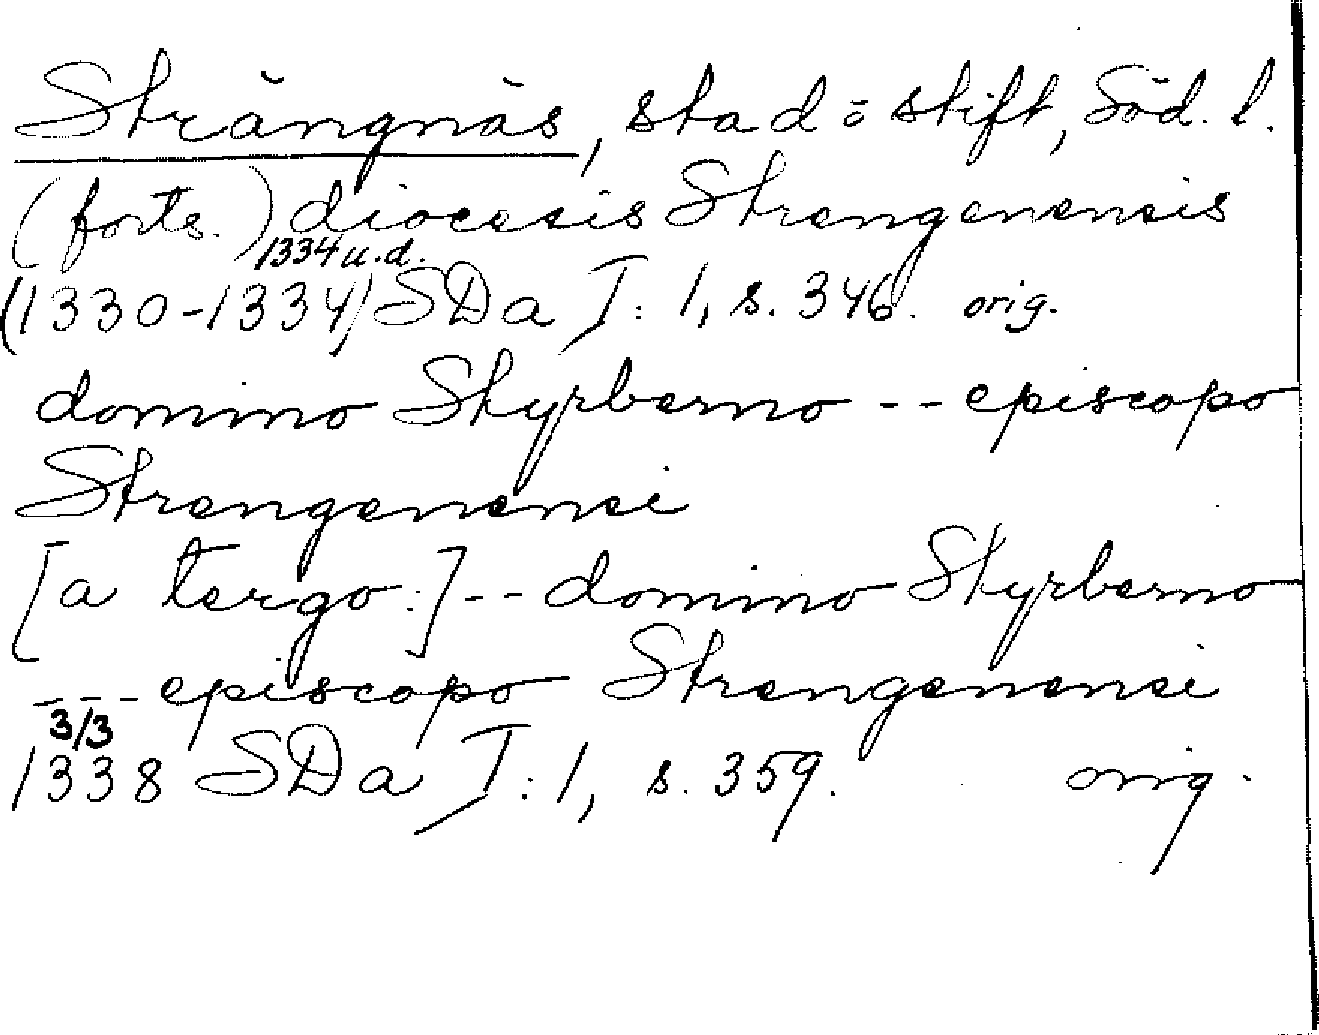 Strängnäs, stad o stift, Söd. l.
(forts.) diocesis Strengenensis
1334 u.d.
(1330-1334) SDa I: 1, s. 346. orig.
domino Styrberno -- episcopo
Strengenensi
[a tergo:] -- domino Styrberno
--- episcopo Strengenensi
3/3
1338 SDa I: 1, s. 359. orig.